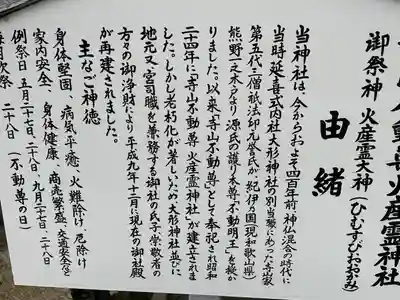 不動尊火産霊神社
御祭神 火産霊大神(ひむすびおおかみ)
由緒
当神社は、今からおよそ四百年前神仏混合の時代に
当時延喜式内社大形神社の別当職にあった寺家
第五代三僧祇法印元挙氏が紀伊の国(現和歌山県)
熊野 源氏の護り本尊「不動明王」を授か
りました。以来「寺山不動尊」として奉祀され昭和
二十四年に「寺山不動尊火産霊神社」が建立されま
した。しかし老朽化が著しいため大形神社並びに
地元又、宮司職を兼務する御社の氏子崇敬者の
方々の御浄財により平成九年十二月に現在の御社殿
が再建されました。
主なご神徳
身体堅固 病気平癒 火難除け 厄除け
家内安全 身体健康 商売繁盛 交通安全など
例祭日 五月二十七、二十八日 九月二十七、二十八日
毎月次祭 二十八日 (不動尊の日)